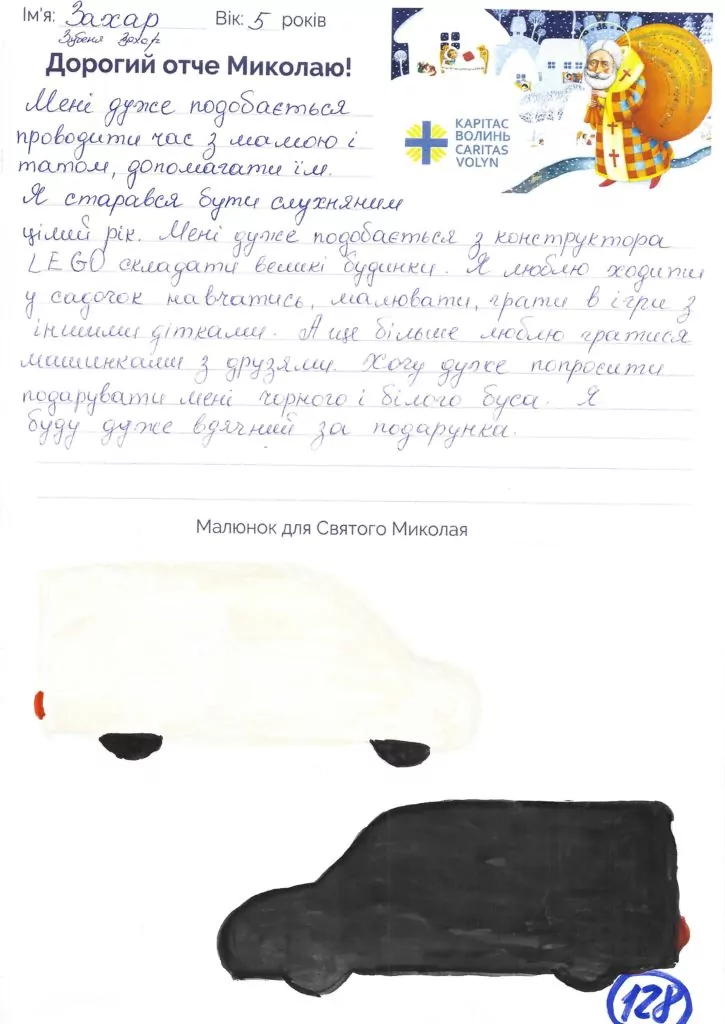 Ім'я: Захар Вік: 5 років
Зубеня Захар
Дорогий отче Миколаю!
КАРІТАС
ВОЛИНЬ
CARITAS
VOLYN
Мені дуже подобається
проводити час з мамою і
татом, допомагати їм.
Я старався бути слухняним
цілий рік. Мені дуже подобається з конструктора
LEGO складати великі будинки. Я люблю ходити
у садочок навчатись, малювати, грати в ігри з
іншими дітками. А ще більше люблю гратися
машинками з друзями. Хочу дуже попросити
подарувати мені чорного і білого буса. Я
буду дуже вдячний за подарунка.
Малюнок для Святого Миколая
128